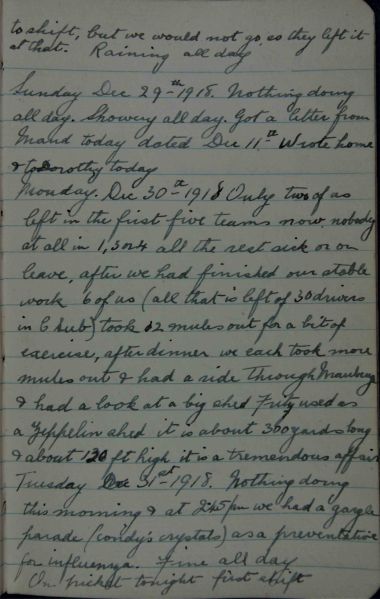 to shift, but we would not go, so they left it
at that. Raining all day
Sunday Dec 29th 1918. Nothing doing
all day. Showery all day. Got a letter from
Maud today dated Dec 11th Wrote home
& to Dorothy today
Monday. Dec 30th 1918 Only two of us
left in the first five teams now, nobody
at all in 1, 3 or 4 all the rest sick or on
leave, after we had finished our stable
work 6 of us (all that is left of 30 drivers
in C sub) took 12 mules out for a bit of
exercise, after dinner we each took more
mules out & had a ride through Mauberge
& had a look at a big shed Fritz used as
a Zeppelin shed it is about 300 yards long
& about 120 ft high it is a tremendous affair
Tuesday Dec 31st 1918. Nothing doing
this morning & at 2.45 pm we had a gargle
parade (condy's crystals) as a preventative
for influenza. Fine all day
On picket tonight first shift